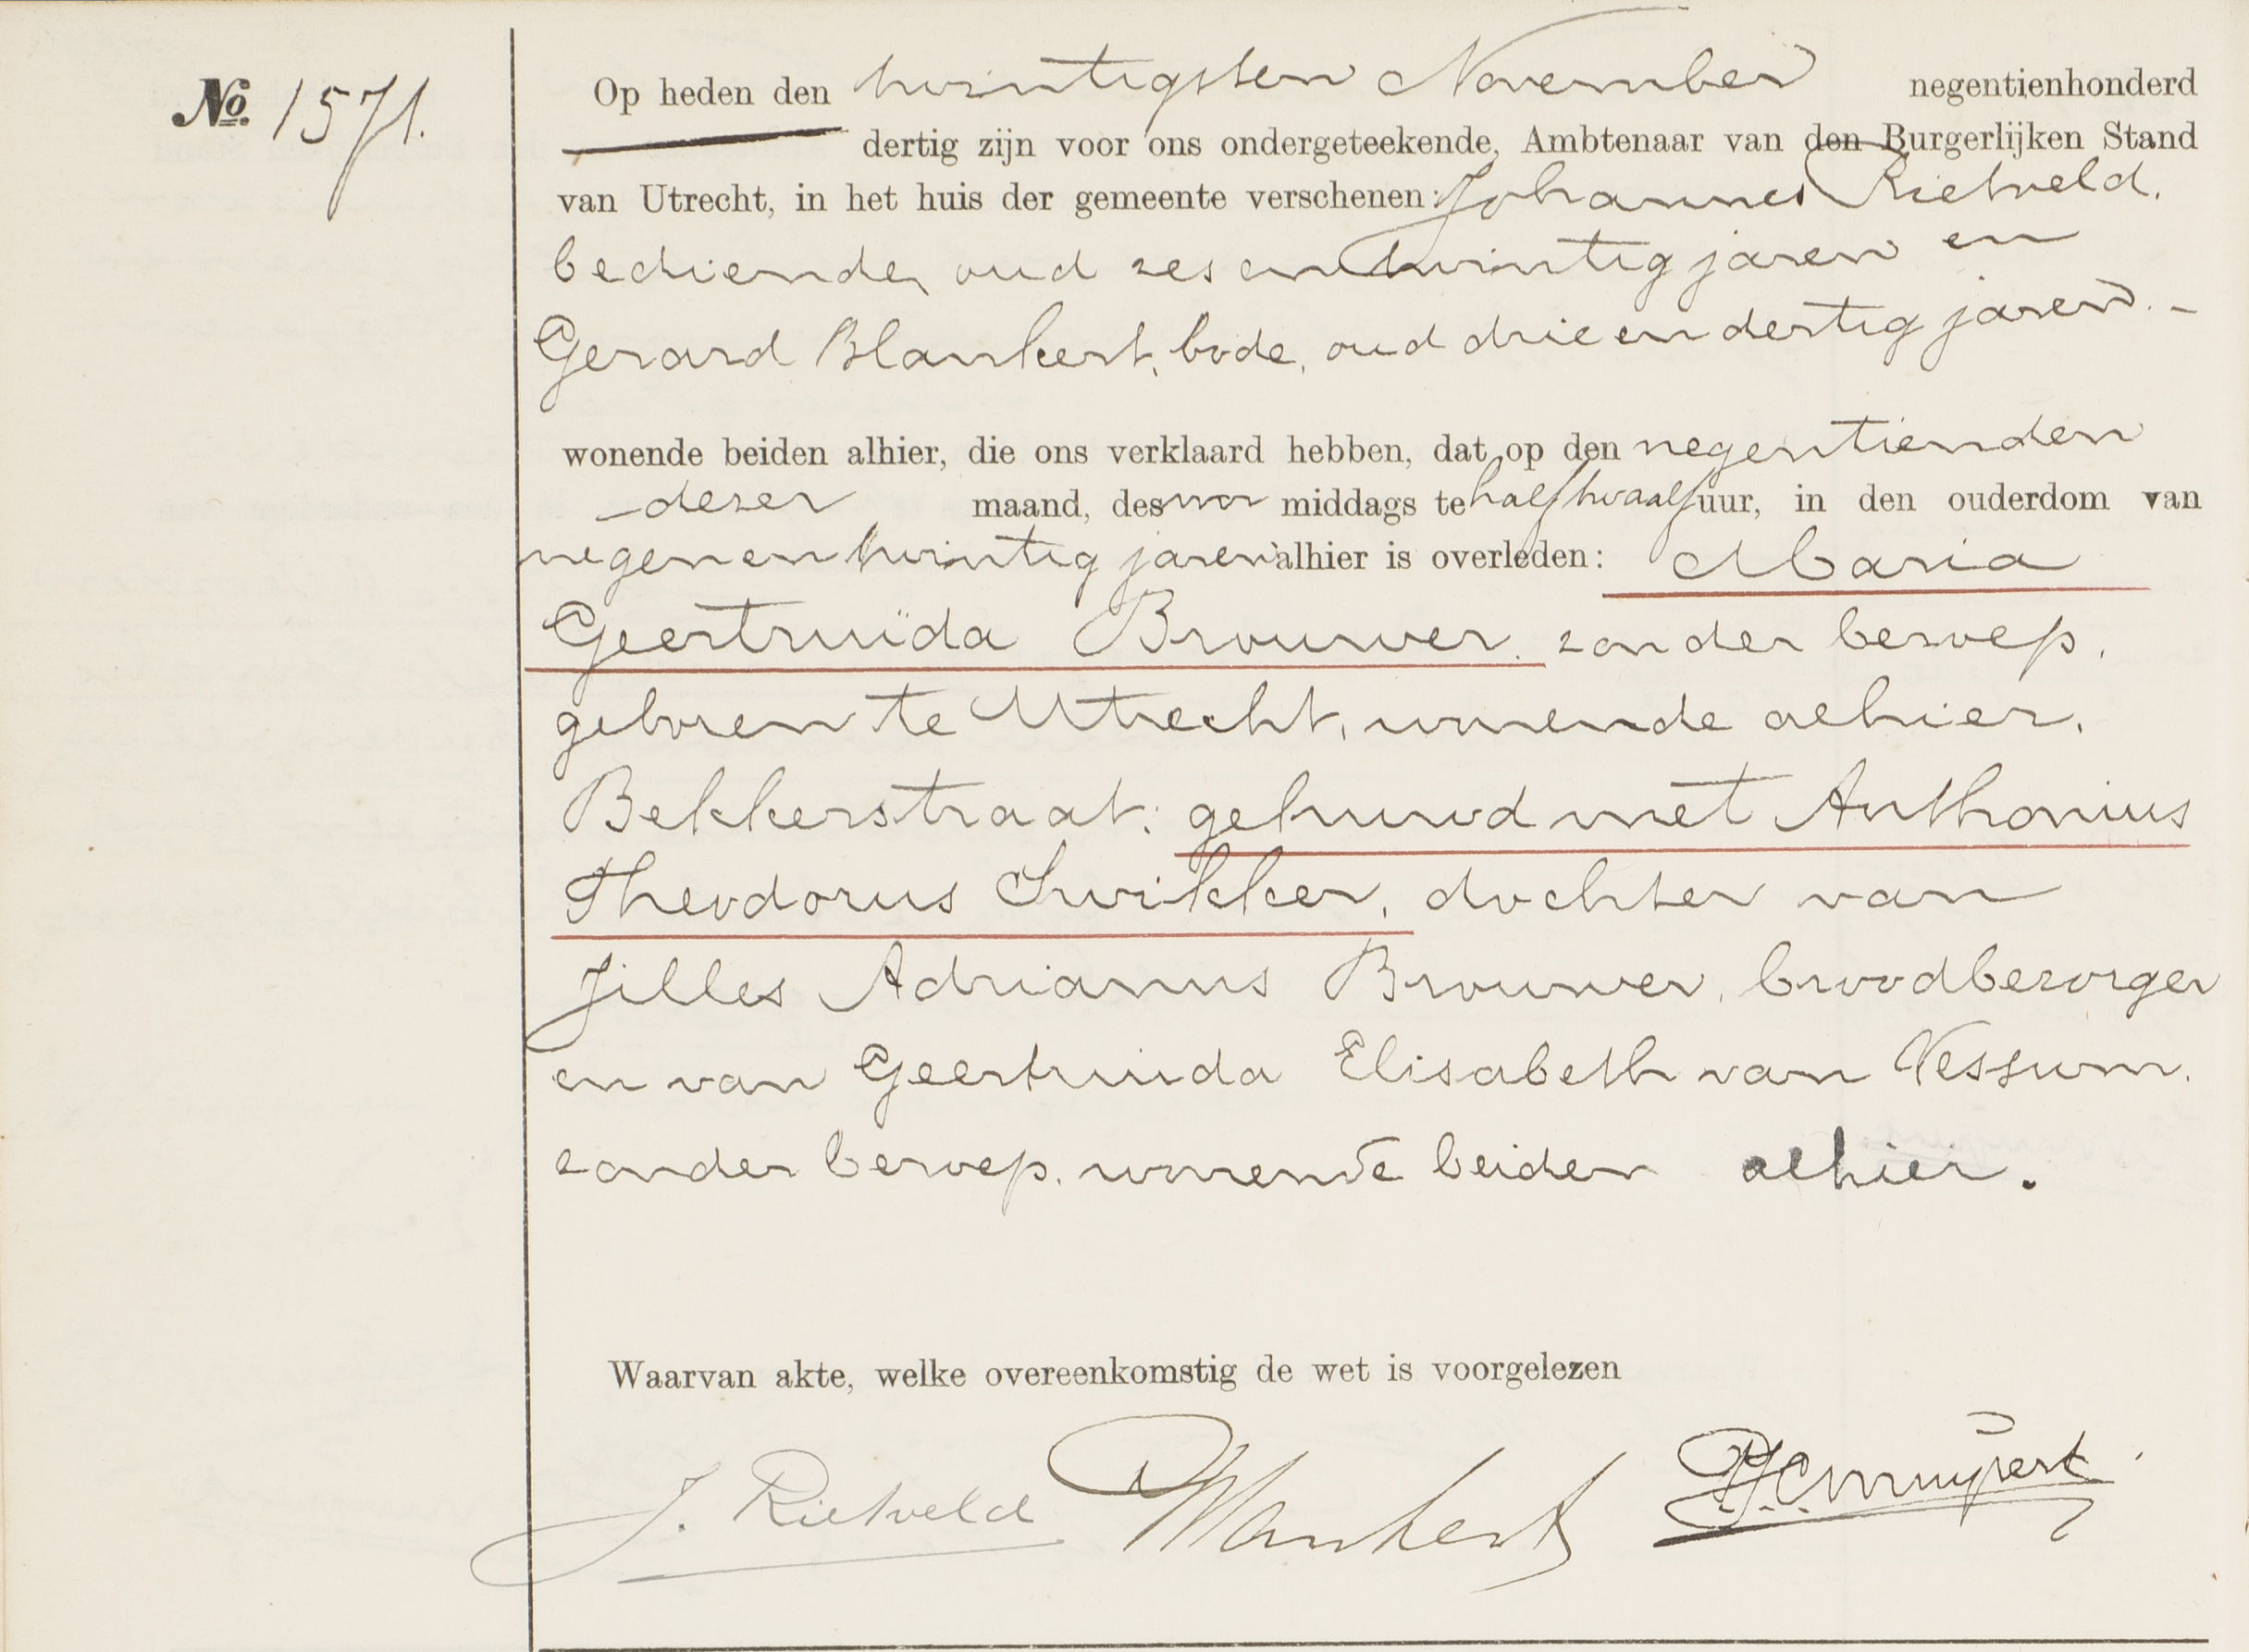 No. 1571.
Op heden den twintigsten November negentienhonderd
dertig zijn voor ons ondergeteekende, Ambtenaar van den Burgerlijken Stand
van Utrecht, in het huis der gemeente verschenen: Johannes Rietveld,
bediende, oud zes en twintig jaren en
Gerard Blankert, bode, oud drie en dertig jaren. -
wonende beiden alhier, die ons verklaard hebben, dat op den negentienden
dezer maand, des voor middags te half twaalf uur, in den ouderdom van
negen en twintig jaren alhier is overleden: Maria
Geertruïda Brouwer, zonder beroep,
geboren te Utrecht, wonende alhier,
Bekkerstraat; gehuwd met Anthonius
Theodorus Swikker, dochter van
Jilles Adrianus Brouwer, broodbezorger
en van Geertruida Elisabeth van Vessum,
zonder beroep, wonende beiden alhier.
Waarvan akte, welke overeenkomstig de wet is voorgelezen
J. Rietveld Blankert